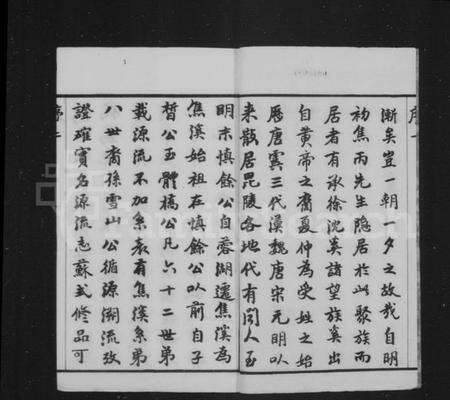 序一
漸矣豈一朝一夕之故哉自明
初焦丙先生隐居於此聚族而
居者有承徐沈奚諸望族奚出
自黄帝之裔夏仲為受姓之始
歷唐虞三代漢魏唐宋元明以
来散居毘陵各地代有聞人至
明末慎餘公自蓉湖遷焦溪為
焦溪始祖在慎餘公以前自子
皙公至體橋公凡六十二世弟
載源流不加系表有焦溪系弟
八世裔孫雪山公循源溯流攷
證確實名源流志蘇式修品可
序二